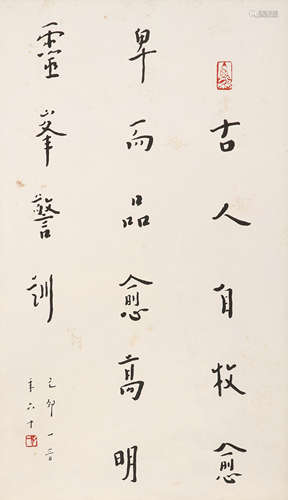 古人自牧愈
卑而品愈高明
靈峯警訓
己卯一音
年六十